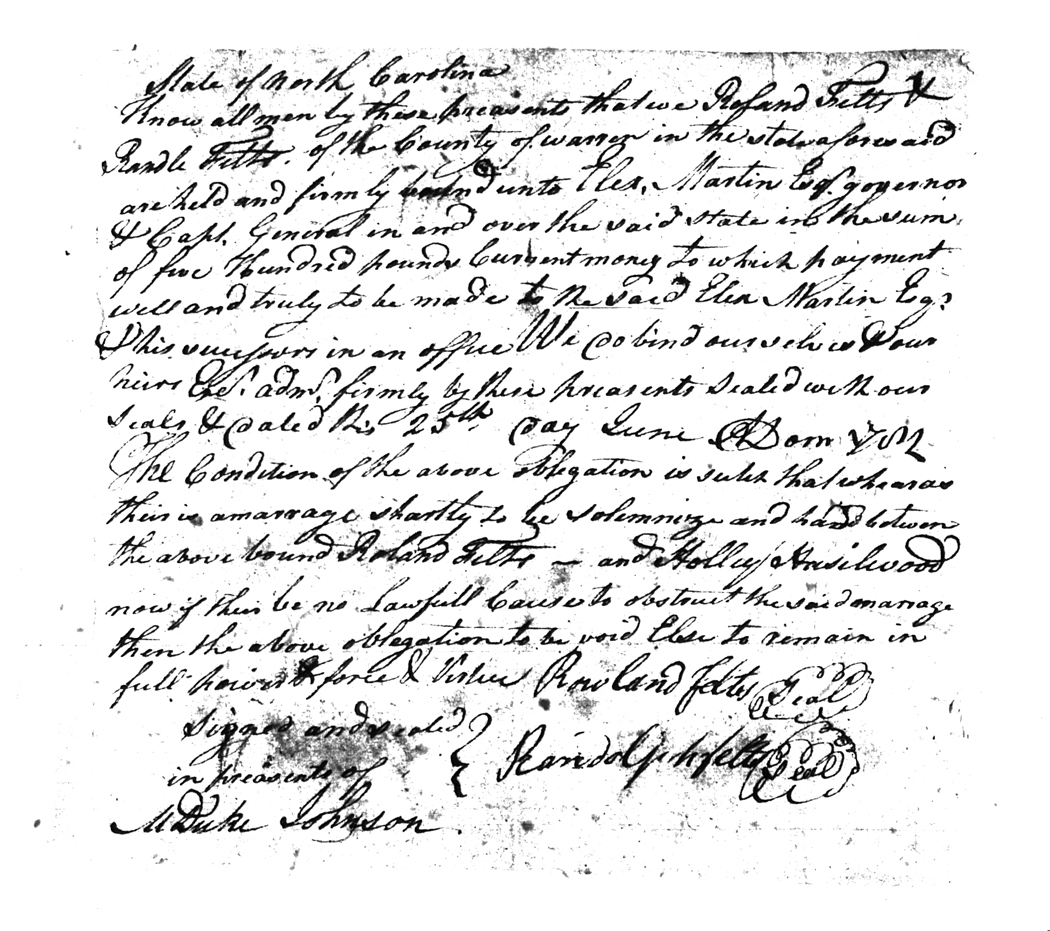 State of North Carolina
Know all men by these preasents that we Roland Felts &
Randle Felts. of the County of warren in the state aforesaid
are held and firmly bound unto Elex. Martin Esqr. governor
& Capt. General in and over the said state in the sum
of five Hundred pounds Current money to which payment
well and truly to be made to the said Elex Martin Esqr
& his sucessors in an office We do bind ourselves & our
heirs Exs. adms. firmly by these preasents sealed with our
seals & dated this 25th day June ADom 1782
The Condition of the above oblegation is such that wheareas
their is a marrage shortly to be solemnize and had between
the above bound Roland Felts — and Holley Hasilwood
now if their be no Lawfull Cause to obstruct the said marrage
then the above oblegation to be void Else to remain in
full power & force & Virtue Rowland felts Seal
Signed and sealed
in preasents of Randolph felts Seal
M Duke Johnson